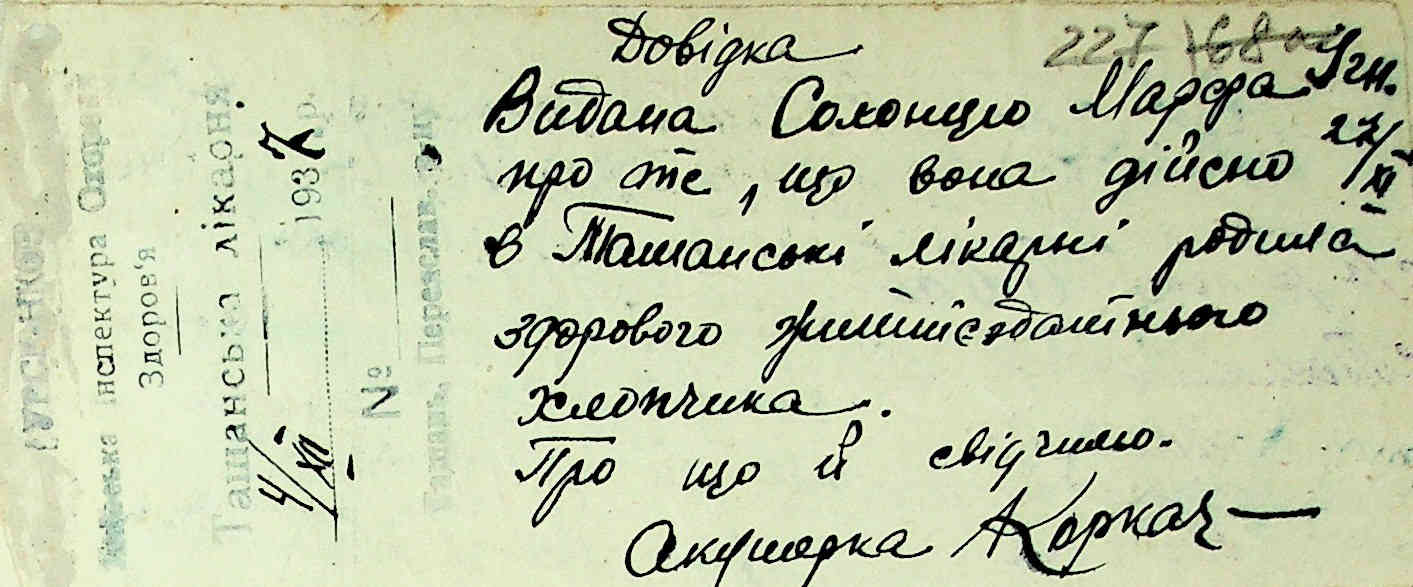 УРСР НКОЗ
інспектура Охорони
Здоров'я
Ташанська лікарня
4/XII 1937 р.
№
Ташань, Переяслав.
227 168
Довідка
Видана Солонцю Марфа Ігн.
про те, що вона дійсно 27/XI
в Ташанські лікарні родила
здорового життєздатнього
хлопчика.
Про що й свідчимо.
Акушорка АКоркач